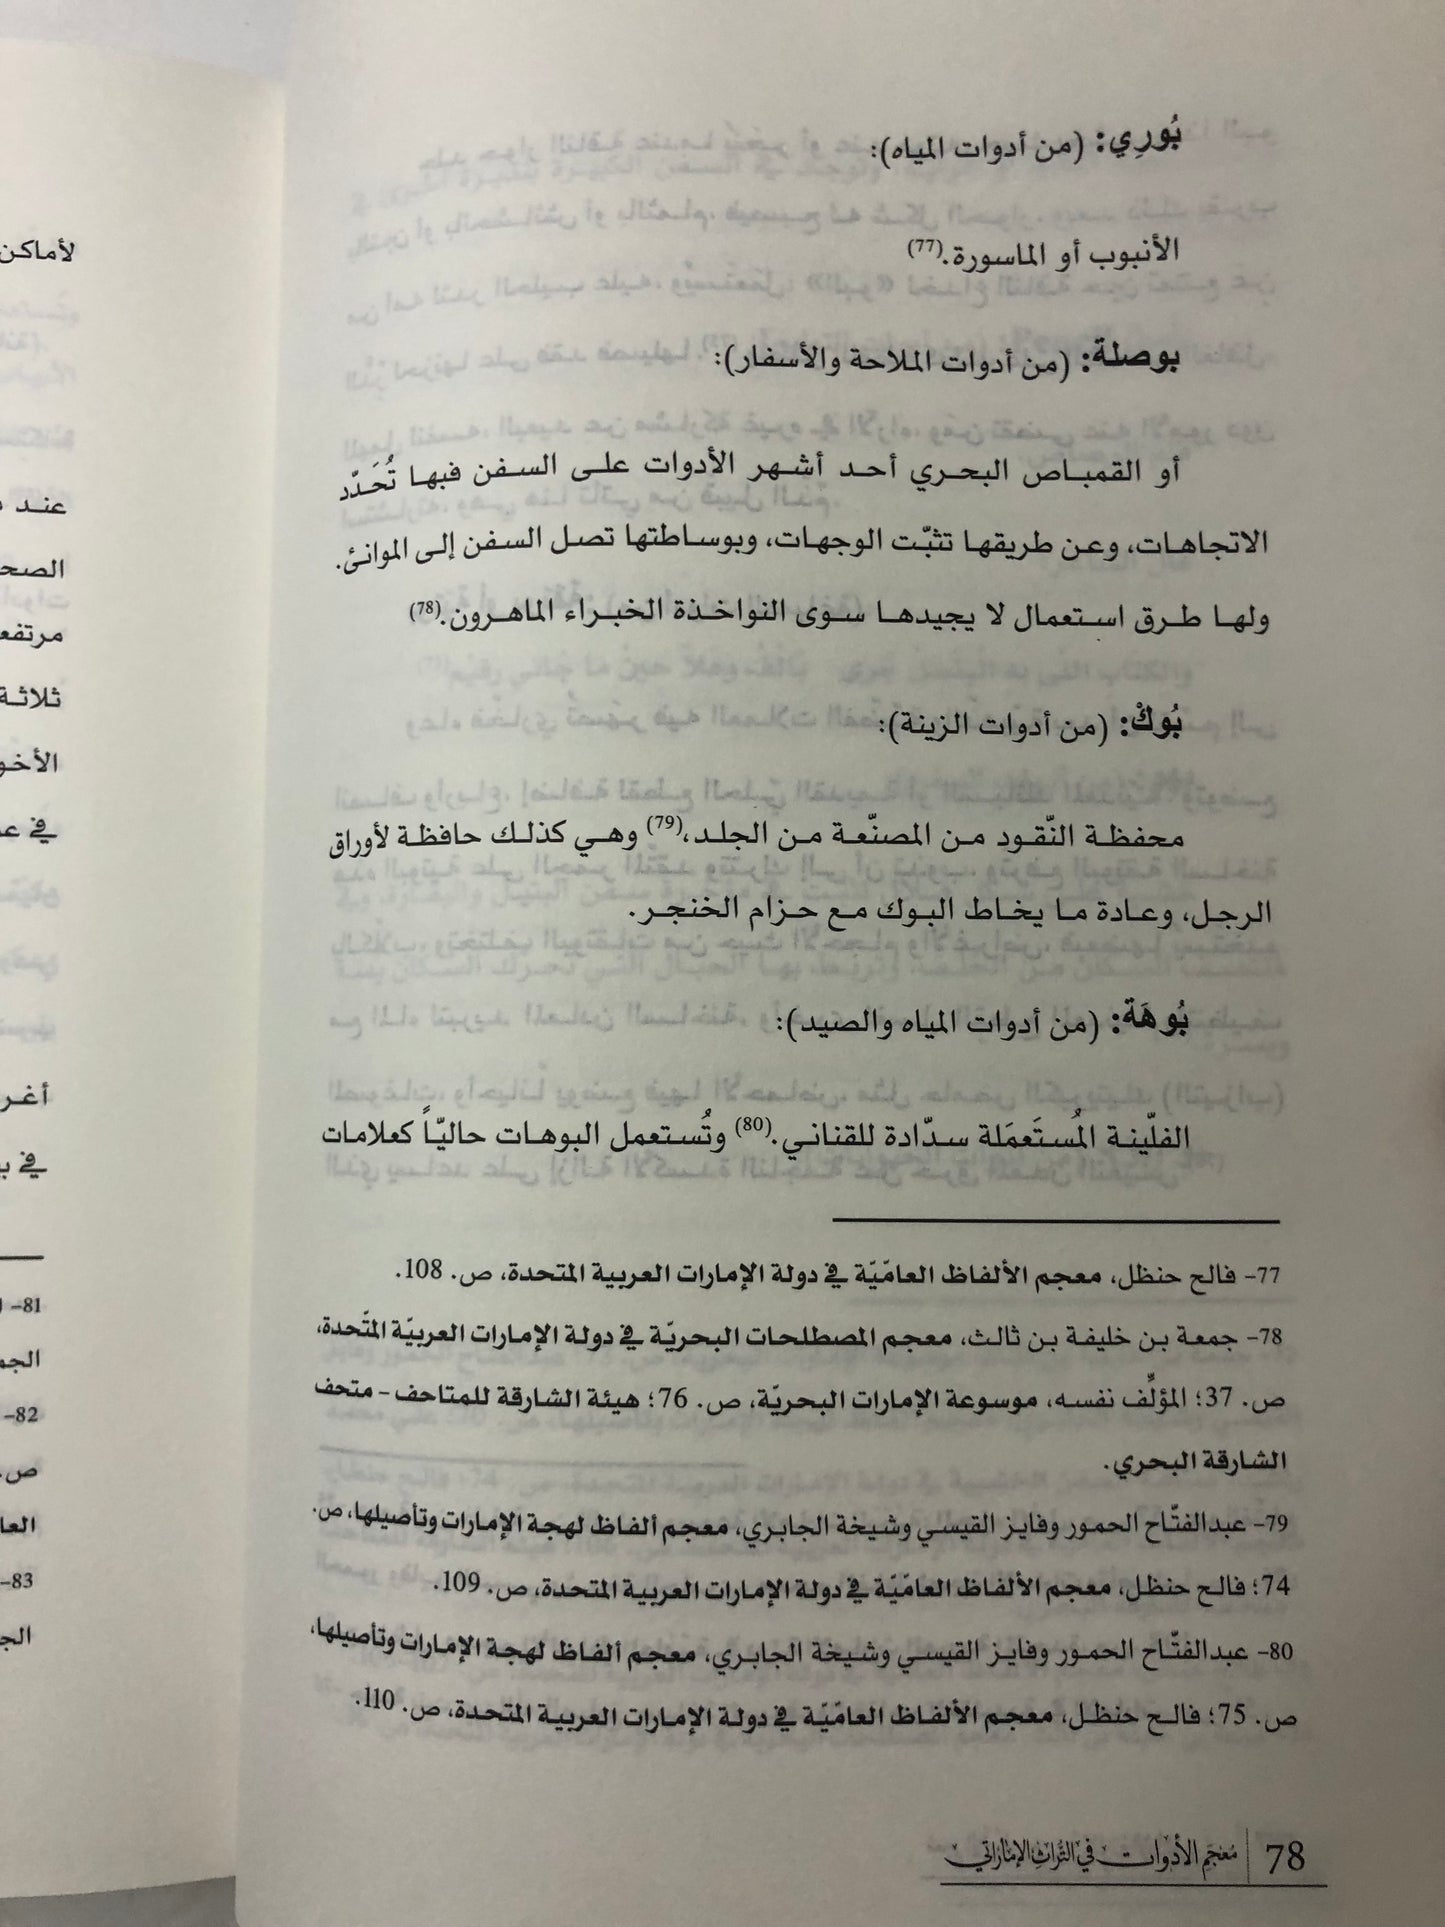 بُورِي: (من أدوات المياه):
الأنبوب أو الماسورة.(77)
بوصلة: (من أدوات الملاحة والأسفار):
أو القمباص البحري أحد أشهر الأدوات على السفن فبها تُحَدّد
الاتجاهات، وعن طريقها تثبّت الوجهات، وبوساطتها تصل السفن إلى الموانئ.
ولها طرق استعمال لا يجيدها سوى النواخذة الخبراء الماهرون.(78)
بُوكْ: (من أدوات الزينة):
محفظة النّقود من المصنّعة من الجلد،(79) وهي كذلك حافظة لأوراق
الرجل، وعادة ما يخاط البوك مع حزام الخنجر.
بُوهَة: (من أدوات المياه والصيد):
الفلّينة المُستَعمَلة سدّادة للقناني.(80) وتُستعمل البوهات حاليّاً كعلامات
77- فالح حنظل، معجم الألفاظ العامّيّة في دولة الإمارات العربية المتحدة، ص. 108.
78- جمعة بن خليفة بن ثالث، معجم المصطلحات البحريّة في دولة الإمارات العربيّة المتّحدة،
ص. 37؛ المؤلِّف نفسه، موسوعة الإمارات البحريّة، ص. 76؛ هيئة الشارقة للمتاحف – متحف
الشارقة البحري.
79- عبدالفتّاح الحمور وفايز القيسي وشيخة الجابري، معجم ألفاظ لهجة الإمارات وتأصيلها، ص.
74؛ فالح حنظل، معجم الألفاظ العامّيّة في دولة الإمارات العربية المتحدة، ص. 109.
80- عبدالفتّاح الحمور وفايز القيسي وشيخة الجابري، معجم ألفاظ لهجة الإمارات وتأصيلها،
ص. 75؛ فالح حنظل، معجم الألفاظ العامّيّة في دولة الإمارات العربية المتحدة، ص. 110.
78 | معجم الأدوات في التراث الإماراتي
لأماكن
عند
مرتفع
ثلاثة
في
أغر
في
81-
82-
ص.
83-